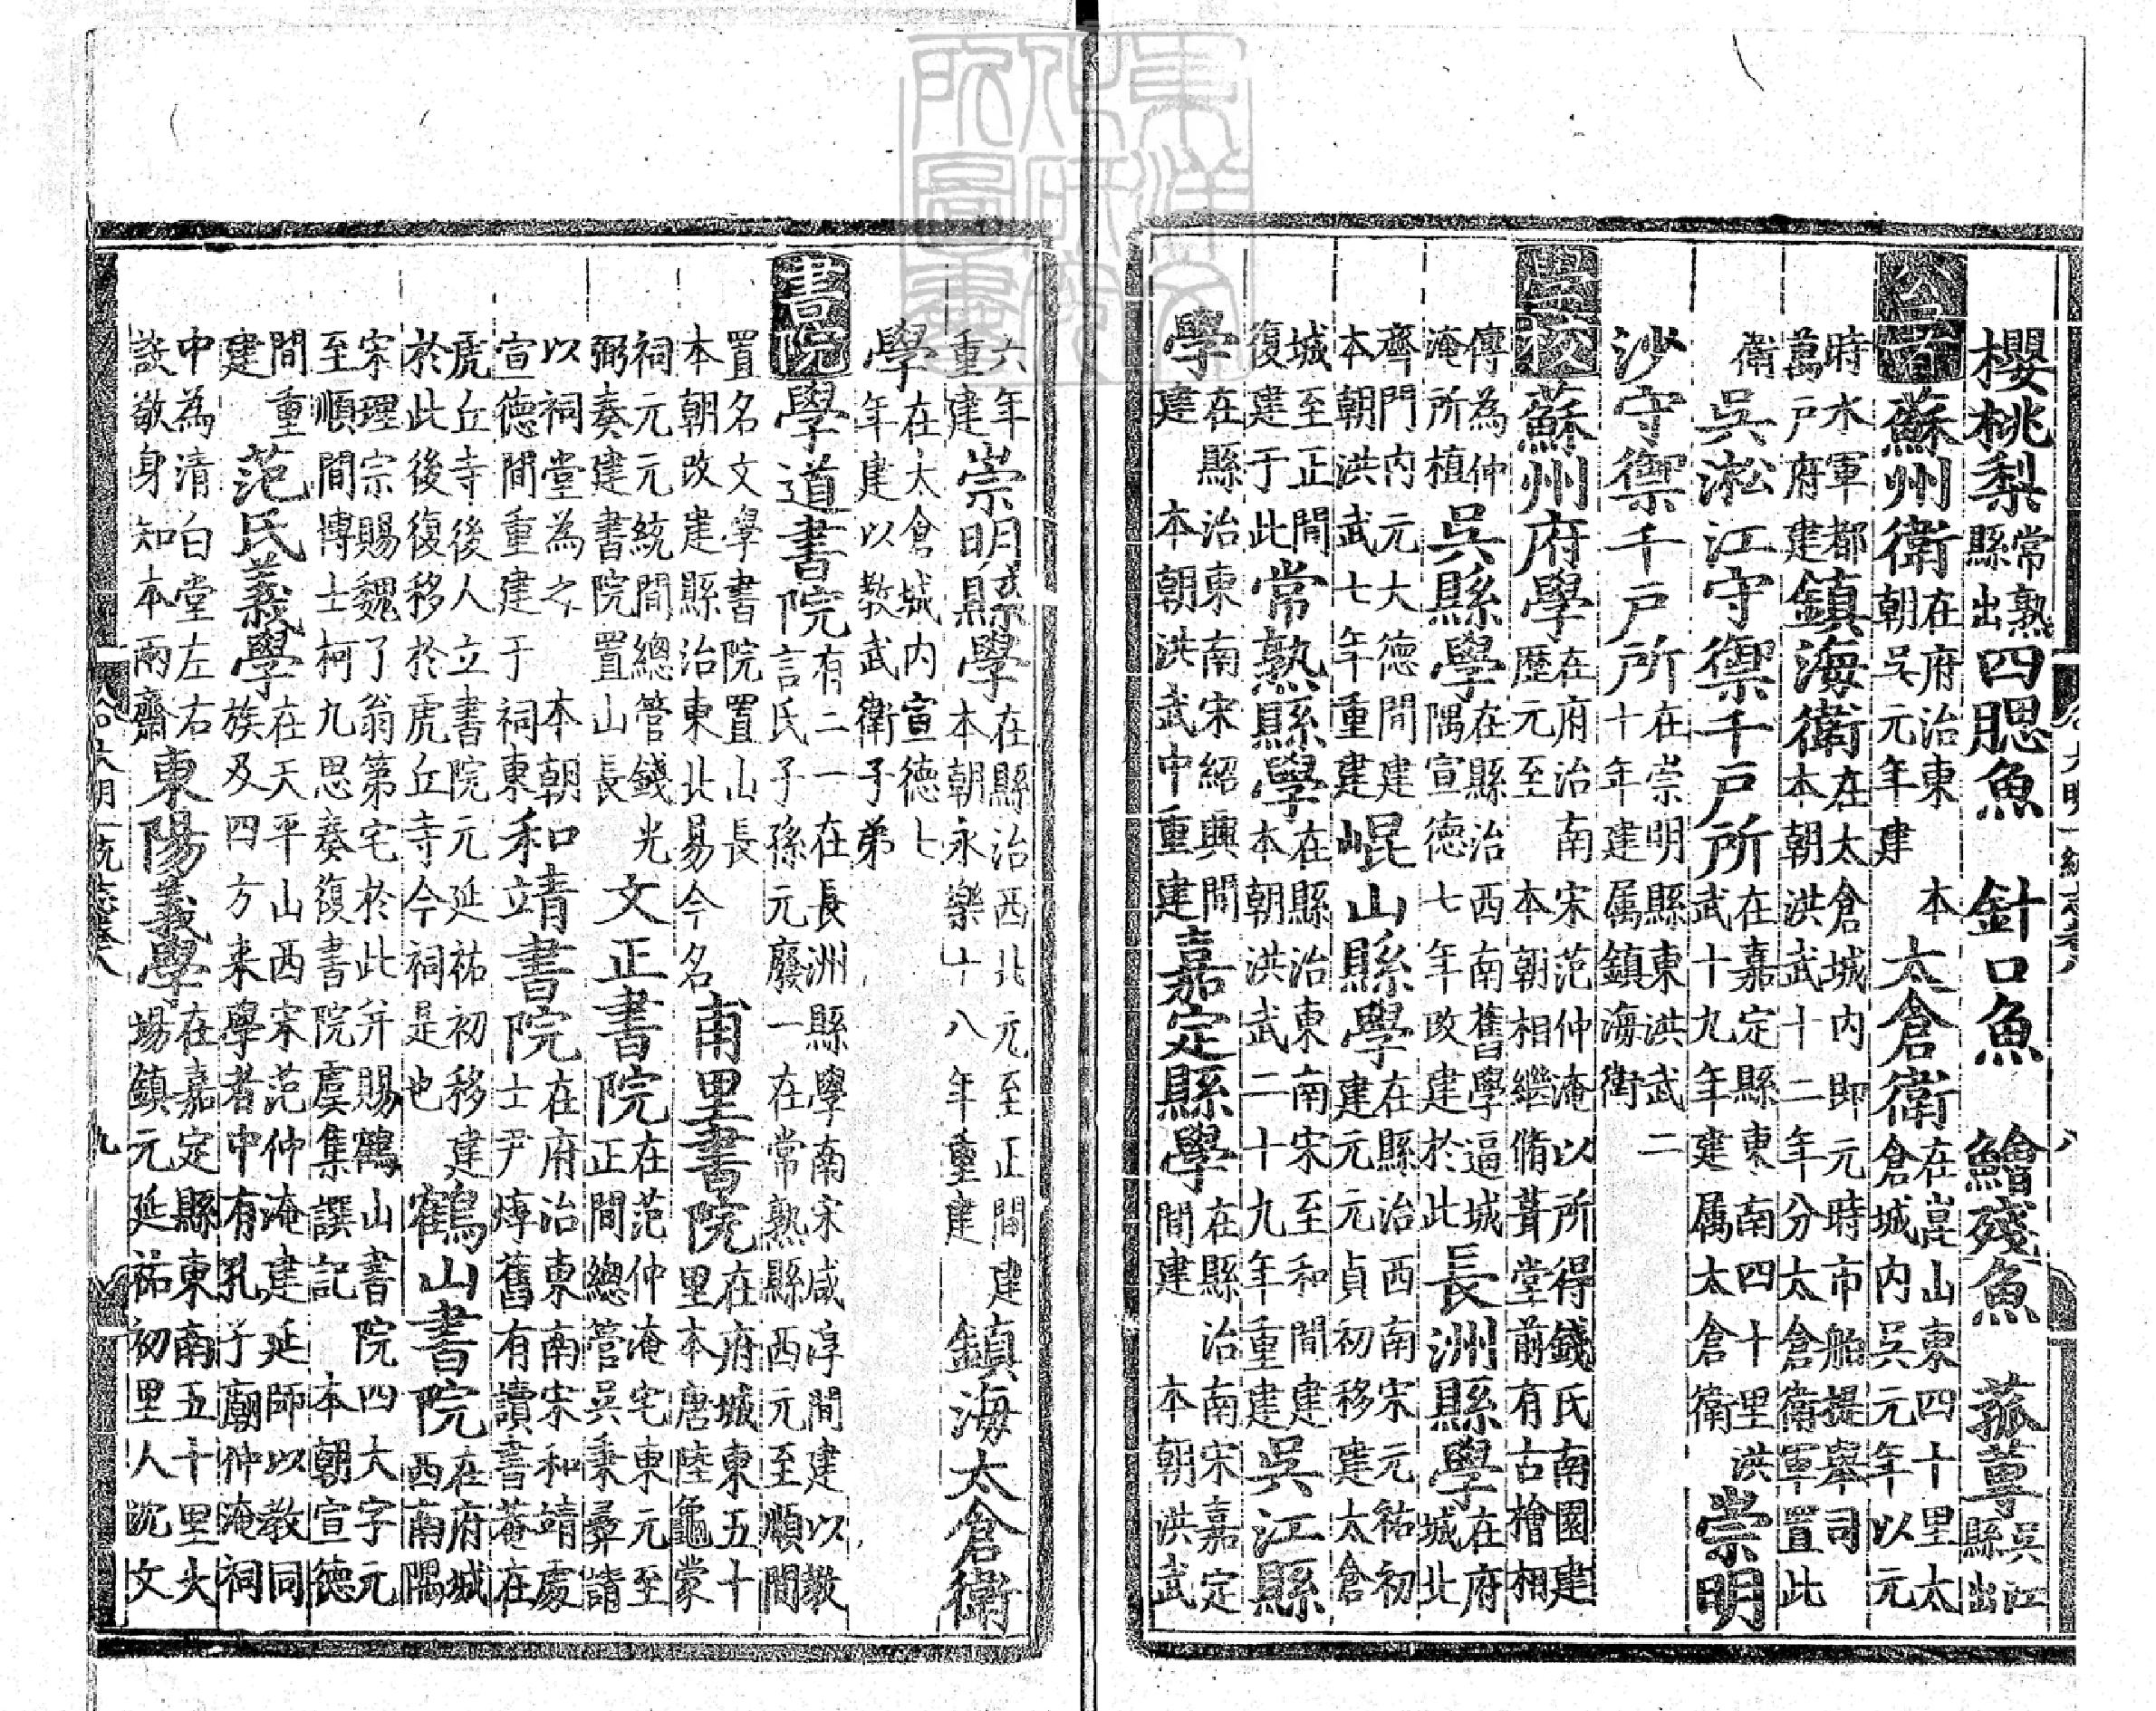 大明一統志卷八 八
櫻桃梨常熟縣出四腮魚 針口魚 鱠殘魚 菰蓴吳江縣出
公署蘇州衛在府治東 本朝吳元年建太倉衛在崑山東四十里太倉城内吳元年以元
時水軍都萬戶府建鎮海衛在太倉城内即元時市舶提舉司本朝洪武十二年分太倉衛軍置此
衛吳淞江守禦千戶所在嘉定縣東南四十里洪武十九年建属太倉衛崇明
沙守禦千戶所在崇明縣東洪武二十年建属鎮海衛
學校蘇州府學在府治南宋范仲淹以所得錢氏南園建歷元至 本朝相繼脩葺堂前有古檜相
傳為仲淹所植吳縣學在縣治西南舊學逼城隅宣德七年改建於此長洲縣學在府城北
齊門内元大德間建本朝洪武七年重建崐山縣學在縣治西南宋元祐初建元元貞初移建太倉
城至正間復建于此常熟縣學在縣治東南宋至和間建本朝洪武二十九年重建吳江縣
學在縣治東南宋紹興間建 本朝洪武中重建嘉定縣學在縣治南宋嘉定間建 本朝洪武
六年重建崇明縣學在縣治西北元至正間建本朝永樂十八年重建鎮海太倉衛
學在太倉城内宣德七年建以教武衛子弟
書院學道書院有二一在長洲縣學南宋咸淳間建以教言氏子孫元廢一在常熟縣西元至順間
置名文學書院置山長本朝改建縣治東北易今名甫里書院在府城東五十里本唐陸龜蒙
祠元元統間總管錢光弼奏建書院置山長文正書院在范仲淹宅東元至正間總管吳秉彞請
以祠堂為之 本朝宣德間重建于祠東和靖書院在府治東南宋和靖處士尹焞舊有讀書菴在
虎丘寺後人立書院元延祐初移建於此後復移於虎丘寺今祠是也鶴山書院在府城西南隅
宋理宗賜魏了翁第宅於此并賜鶴山書院四大字元至順間博士柯九思奏復書院虞集譔記 本朝宣德
間重建范氏義學在天平山西宋范仲淹建延師以教同族及四方来學者中有孔子廟仲淹祠
中為清白堂左右設敬身知本兩齋東陽義學在嘉定縣東南五十里大場鎮元延祐初里人沈文
大明一統志卷八 九